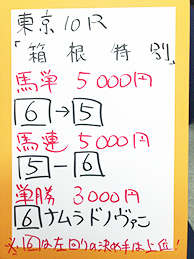 東京10R
「箱根特別」
馬単 5000円
6→5
馬連 5000円
5-6
単勝 3000円
6ナムラドノヴァン
※6は左回りの決め手は上位!